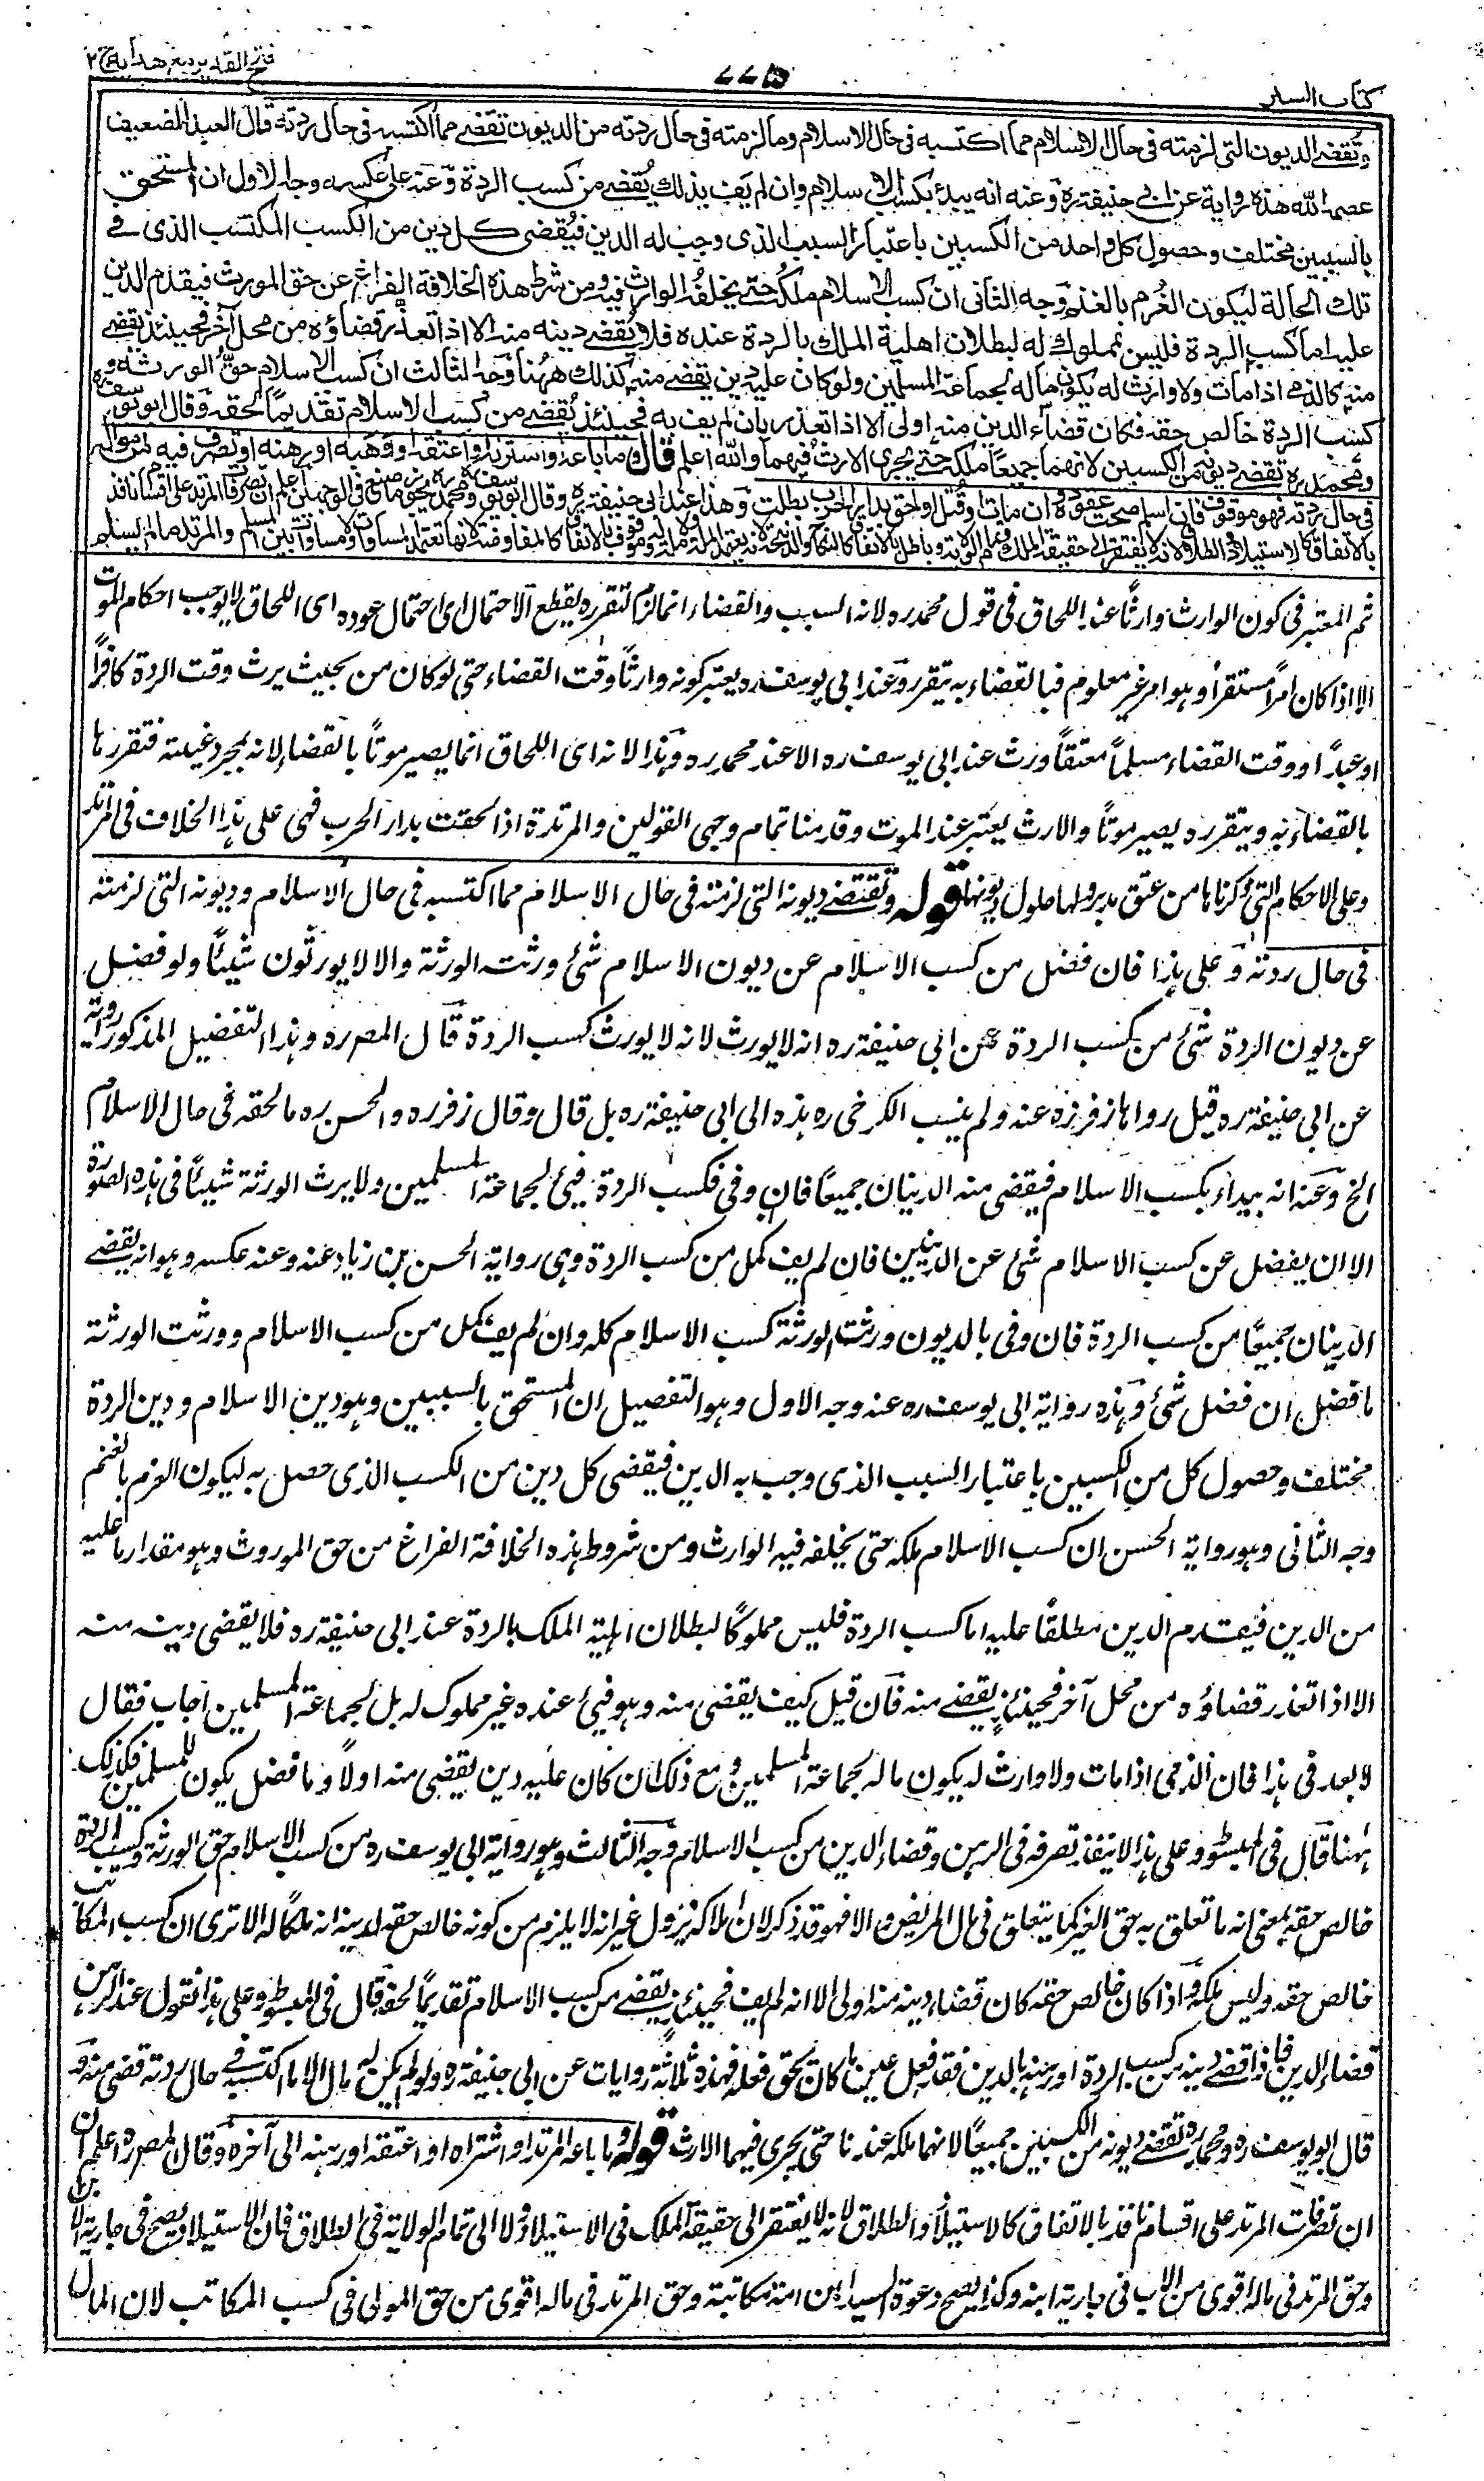 كتاب السير
فتح القدير مع هدايه ج ٢
وتُقضے الديون التى لزمته فى حال الاسلام مما اكتسبه فى حال الاسلام وما لزمته فى حال ردته من الديون تقضے مما اكتسبه فى حال ردته قال العبد الضعيف
عصمه الله هذه رواية عن ابى حنيفة ره وعنه انه يبدئ بكسب الاسلام وان لم يف بذلك يُقضے من كسب الردة وعنه على عكسه وجه الاول ان المستحق
بالسببين مختلف وحصول كل واحد من الكسبين باعتبار السبب الذى وجب له الدين فيُقضى كل دين من الكسب المكتسب الذى فے
تلك الحالة ليكون الغُرم بالغنم وجه الثانى ان كسب الاسلام ملكه حتے يخلفُه الوارث فيه ومن شرط هذه الخلافة الفراغ عن حق المورث فيقدم الدين
عليه اما كسب الردة فليس بمملوك له لبطلان اهلية الملك بالردة عنده فلا يُقضے دينه منه الا اذا تعذر قضاؤه من محل آخر فحينئذ تقضے
منه كالذمى اذا مات ولا وارث له يكون ماله لجماعة المسلمين ولو كان عليه دين يقضے منه كذلك ههُنا وجه الثالث ان كسب الاسلام حق الورثة و
كسب الردة خالص حقه فكان قضاء الدين منه اولى الا اذا تعذر بان لم يف به فحينئذ يُقضے من كسب الاسلام تقديمًا لحقه وقال ابو يوسف ره
ومحمد ره تقضے ديونه من الكسبين لانهما جميعًا ملكه حتے يجرى الارث فيهما والله اعلم قال وما باعه او اشتراه او اعتقه او وهبه او رهنه او تصرف فيه من امواله
فى حال ردته فهو موقوف فان اسلم صحت عقوده وان مات او قُتل او لحق بدار الحرب بطلت وهذا عند ابى حنيفة ره وقال ابو يوسف ره ومحمد ره يجوز ما صنع فى الوجهين اعلم ان تصرفات المرتد على اقسام نافذ
بالاتفاق كالاستيلاد والطلاق لانه لا يفتقر الى حقيقة الملك وتمام الولاية وباطل بالاتفاق كالنكاح والذبيحة لانه يعتمد الملة ولا ملة له وموقوف بالاتفاق كالمفاوضة لانها تعتمد المساواة ولا مساواة بين المسلم والمرتد ما لم يسلم
ثم المعتبر فى كون الوارث وارثًا عند اللحاق فى قول محمد ره لانه السبب والقضاء انما لزم لتقرره بقطع الاحتمال اى احتمال عوده اى اللحاق لا يوجب احكام الموت
الا اذا كان امرًا مستقرًا وهو امر غير معلوم فبالقضاء به يتقرر وعند ابى يوسف ره يعتبر كونه وارثًا وقت القضاء حتى لو كان من بحيث يرث وقت الردة كافرًا
او عبدًا ووقت القضاء مسلمًا معتقًا ورث عند ابى يوسف ره الا عند محمد ره وهذا لانه اى اللحاق انما يصير موتًا بالقضاء لانه بمجرد غيبته فتقررها
بالقضاء به وبتقرره يصير موتًا والارث يعتبر عند الموت وقد منا تمام وجهى القولين والمرتدة اذا لحقت بدار الحرب فهى على هذا الخلاف فى ارثها
وعلى الاحكام التى ذكرناها من عتق مدبريها وحلول ديونها قوله وتقتضے ديونه التى لزمته فى حال الاسلام مما اكتسبه فى حال الاسلام وديونه التى لزمته
فى حال ردته وعلى هذا فان فضل من كسب الاسلام عن ديون الاسلام شئ ورثت الورثة والا لا يورثون شيئًا ولو فضل
عن ديون الردة شئ من كسب الردة عن ابى حنيفة ره انه لا يورث لانه لا يورث كسب الردة قال المصره وهذا التفصيل المذكور رواية
عن ابى حنيفة ره قيل رواها زفر ره عنه ولم ينسب الكرخى ره هذه الى ابى حنيفة ره بل قال وقال زفر ره والحسن ره ما لحقه فى حال الاسلام
الخ وعنه انه يبداء بكسب الاسلام فيقضى منه الدينان جميعًا فان وفى فكسب الردة فيئ لجماعة المسلمين ولا يرث الورثة شيئًا فى هذه الصورة
الا ان يفضل عن كسب الاسلام شئ عن الدينين فان لم يف كمل من كسب الردة وهى رواية الحسن بن زياد عنه وعنه عكسه وهو انه يقضے
الدينان جميعًا من كسب الردة فان وفى بالديون ورثت الورثة كسب الاسلام كله وان لم يف كمل من كسب الاسلام وورثت الورثة
ما فضل ان فضل شئ وهذه رواية ابى يوسف ره عنه وجه الاول وهو التفصيل ان المستحق بالسببين وهو دين الاسلام ودين الردة
مختلف وحصول كل من الكسبين باعتبار السبب الذى وجب به الدين فيقضى كل دين من الكسب الذى حصل به ليكون الغرم بالغنم
وجه الثانى وهو رواية الحسن ان كسب الاسلام ملكه حتى يخلفه فيه الوارث ومن شروط هذه الخلافة الفراغ من حق الموروث وهو مقدار ما عليه
من الدين فيقدم الدين مطلقًا عليه اما كسب الردة فليس مملوكًا لبطلان اهلية الملك بالردة عند ابى حنيفة ره فلا يقضى دينه منه
الا اذا تعذر قضاؤه من محل آخر فحينئذ يقضے منه فان قيل كيف يقضى منه وهو فيئ عنده غير مملوك له بل لجماعة المسلمين اجاب فقال
لا بعد فى هذا فان الذمى اذا مات ولا وارث له يكون ماله لجماعة المسلمين ومع ذلك ان كان عليه دين يقضى منه اولًا وما فضل يكون للمسلمين فكذلك
ههنا قال فى المبسوط وعلى هذا لا ينفذ تصرفه فى الرهن وقضاء الدين من كسب الاسلام وجه الثالث وهو رواية ابى يوسف ره من كسب الاسلام حق الورثة وكسب الردة
خالص حقه بمعنى انه ما تعلق به حق الغير كما يتعلق فى مال المريض والا فهو قد ذكر لان املاكه تزول غير انه لا يلزم من كونه خالص حقه لدينه انه ملكًا له الا ترى ان كسب المكاتب
خالص حقه وليس ملكه واذا كان خالص حقه كان قضاء دينه منه اولى الا انه لم يف فحينئذ يقضے من كسب الاسلام تقديمًا لحقه قال فى المبسوط وعلى هذا نقول عقد الرهن
قضاء الدين فاذا قضے دينه من كسب الردة او رهنه بالدين فقد فعل عين ما كان يحق فعله فهذه ثلاثة روايات عن ابى حنيفة ره ولو لم يكن له مال الا ما اكتسبه فى حال ردته قضى منه و
قال ابو يوسف ره ومحمد ره تقضے ديونه من الكسبين جميعًا لانهما ملكه عندنا حتى يجرى فيهما الارث قوله وما باعه المرتد او اشتراه او اعتقه او رهنه الى آخره وقال المصره اعلم ان
ان تصرفات المرتد على اقسام نافذ بالاتفاق كالاستيلاد والطلاق لانه لا يفتقر الى حقيقة الملك فى الاستيلاد ولا الى تمام الولاية فى الطلاق فان الاستيلاد يصح فى جارية الابن
وحق المرتد فى ماله اقوى من الاب فى جارية ابنه وكذا يصح دعوة السيد ابن امة مكاتبة وحق المرتد فى ماله اقوى من حق المولى فى كسب المكاتب لان المال